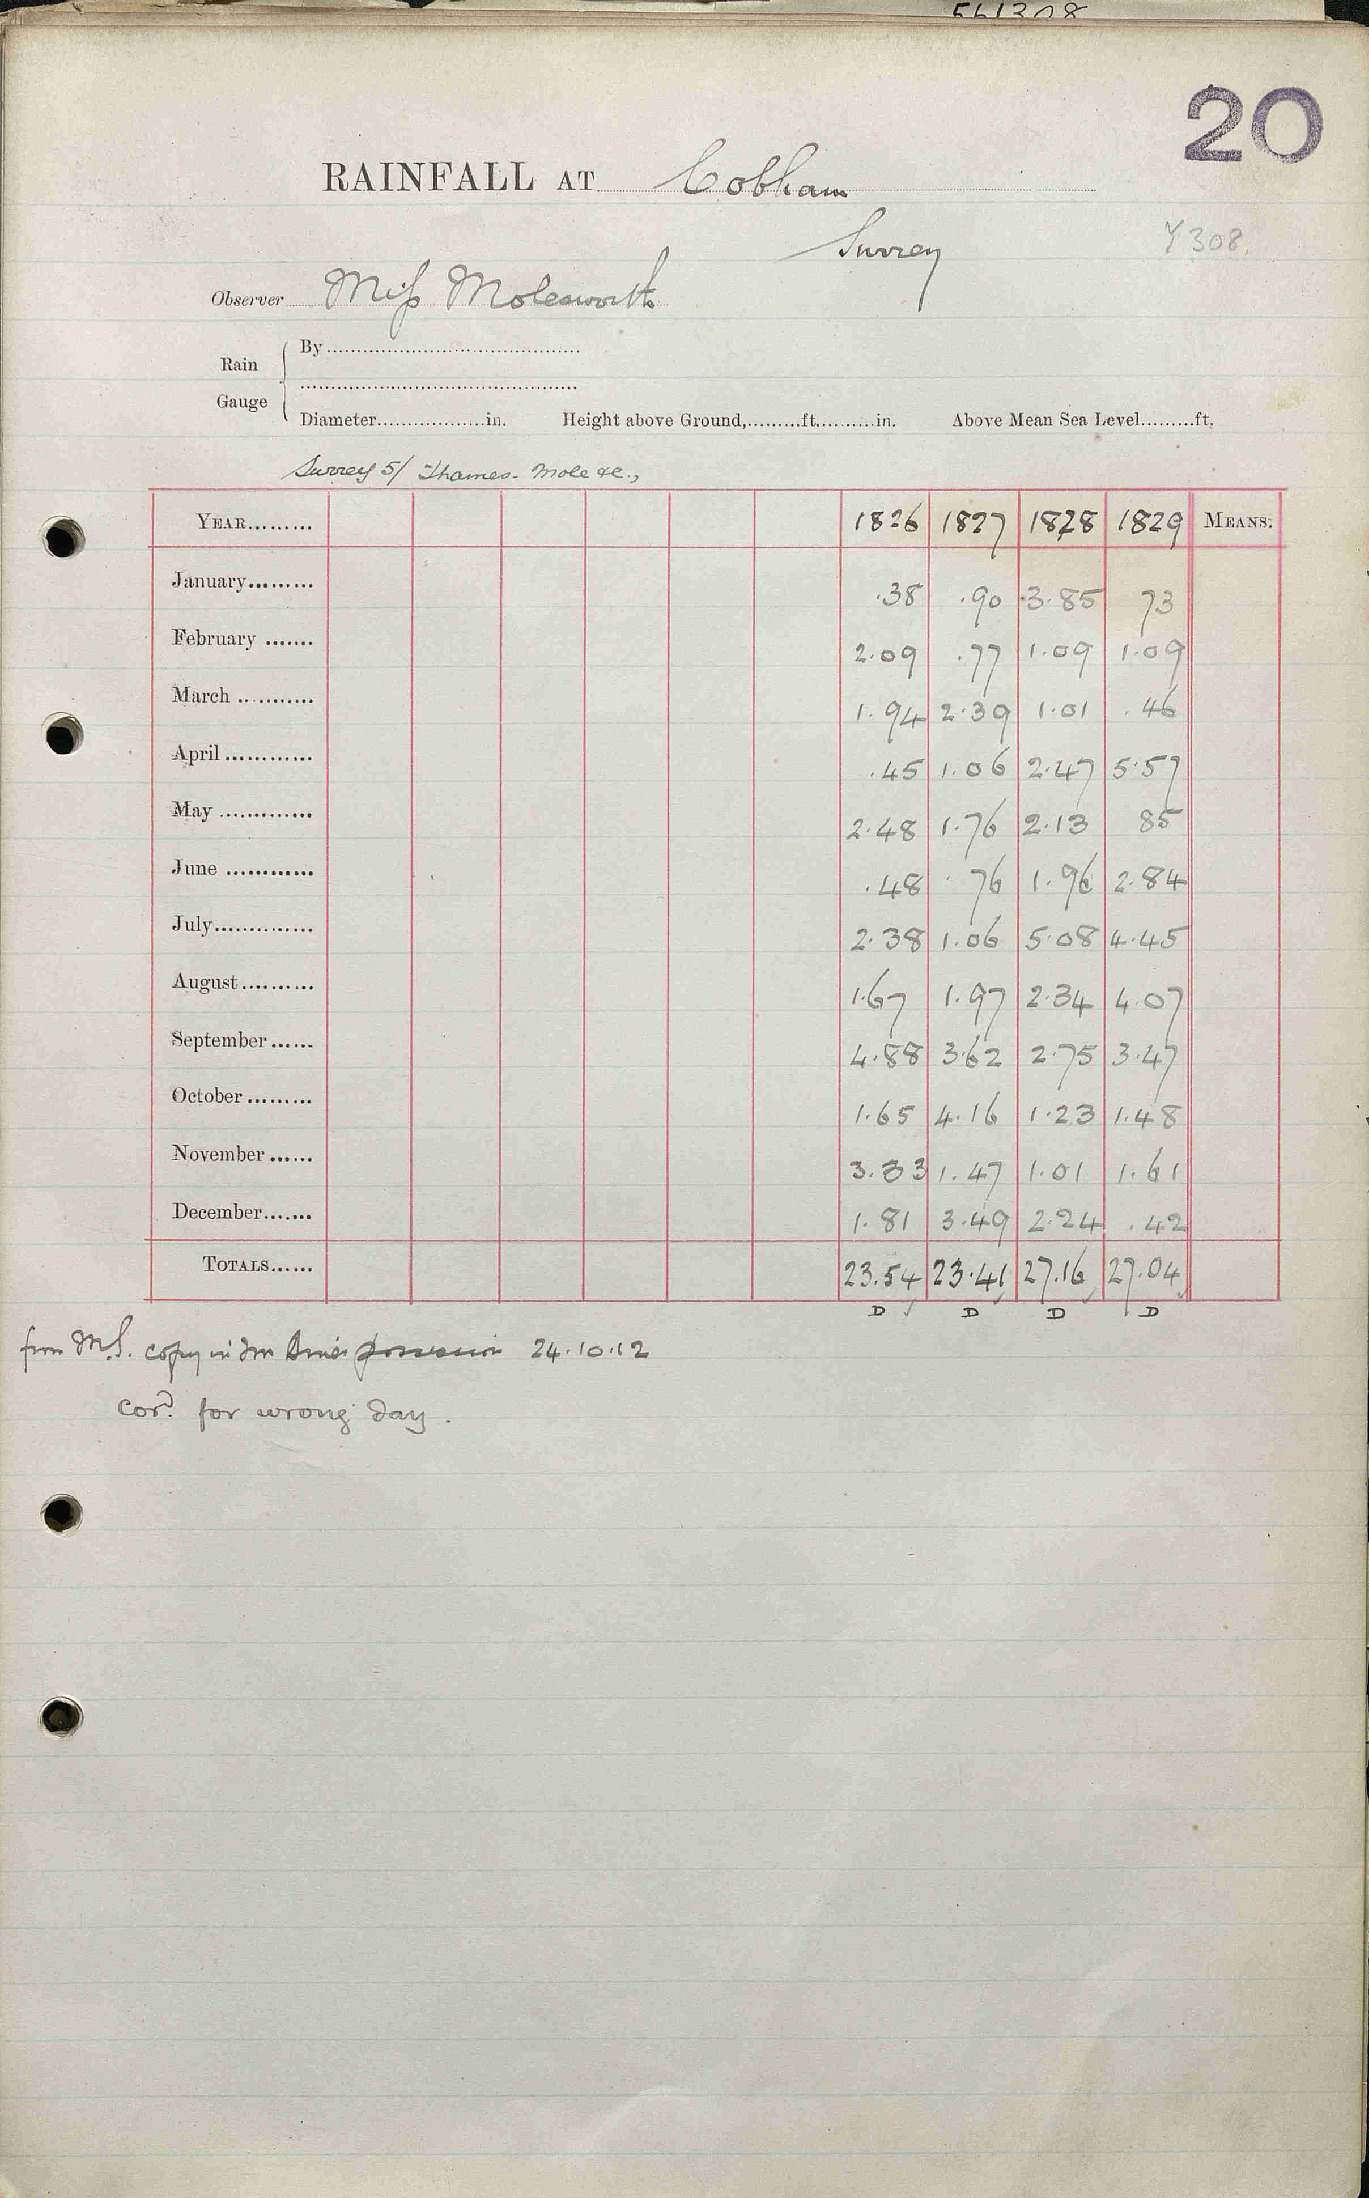 561308
20
RAINFALL AT Cobham
Surrey
Y308.
Observer Miss Molesworth
Rain Gauge
By
Diameter in. Height above Ground, ft. in. Above Mean Sea Level ft.
Surrey 5/ Thames - Mole &c.,
YEAR 1826 1827 1828 1829 MEANS.
January .38 .90 3.85 73
February 2.09 .77 1.09 1.09
March 1.94 2.39 1.01 .46
April .45 1.06 2.47 5.57
May 2.48 1.76 2.13 85
June .48 .76 1.96 2.84
July 2.38 1.06 5.08 4.45
August 1.67 1.97 2.34 4.07
September 4.88 3.62 2.75 3.47
October 1.65 4.16 1.23 1.48
November 3.33 1.47 1.01 1.61
December 1.81 3.49 2.24 .42
TOTALS 23.54 23.41 27.16 27.04
D D D D
from M.S. copy in possession 24.10.12
Corn. for wrong day.